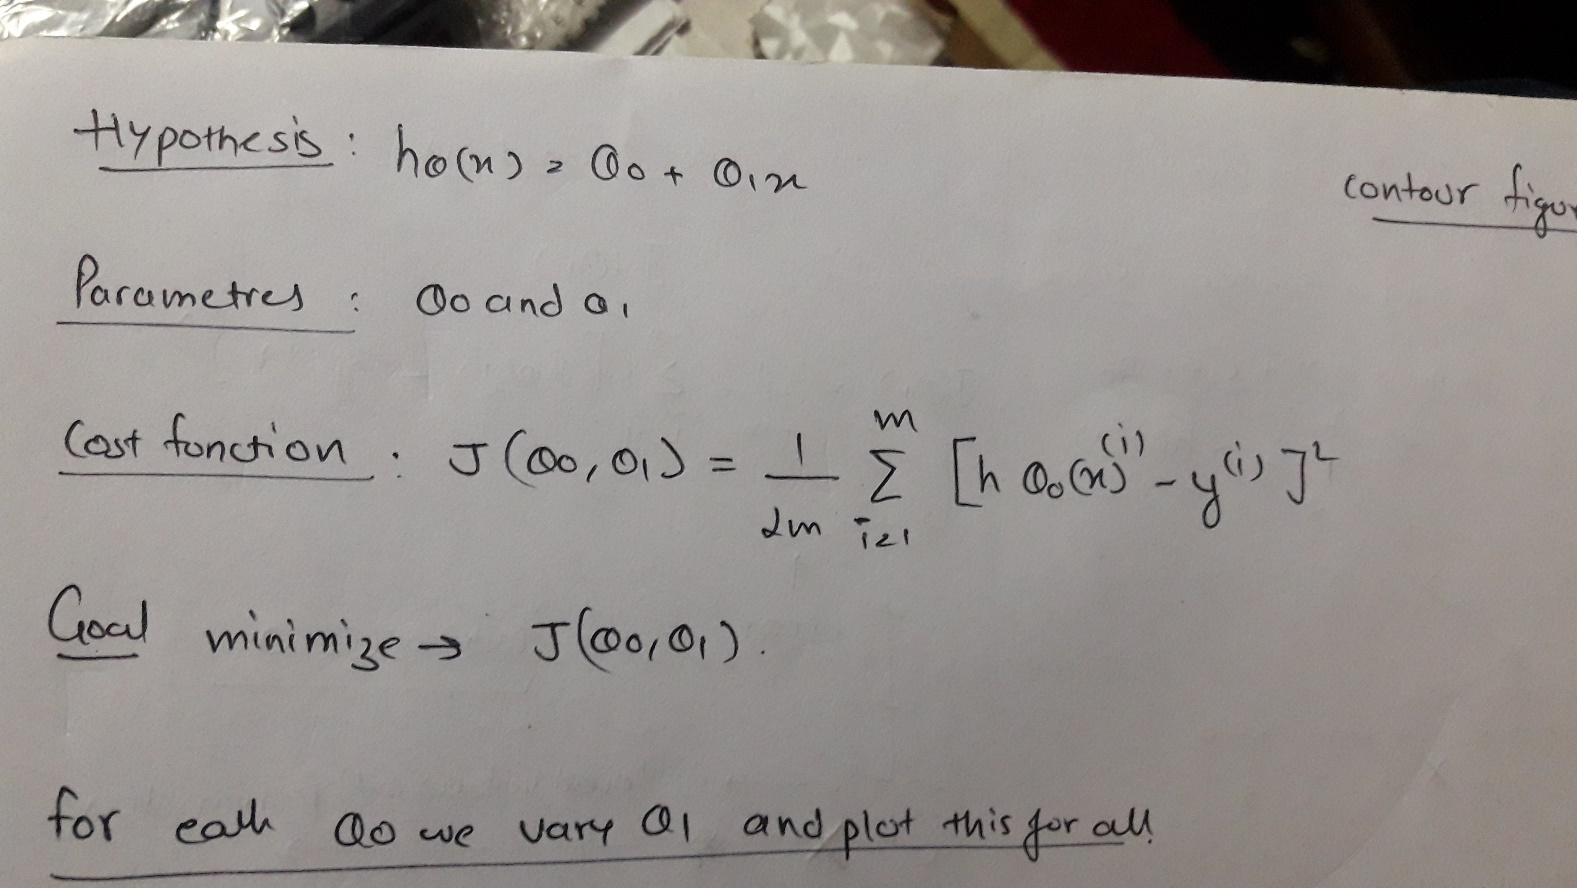 Hypothesis : hθ(x) = θ0 + θ1x
contour figur
Parametres : θ0 and θ1
Cost fonction : J(θ0, θ1) = 1/2m Σ i=1 m [h θ0(x)^(i) - y^(i)]²
Goal minimize → J(θ0, θ1).
for each θ0 we vary θ1 and plot this for all